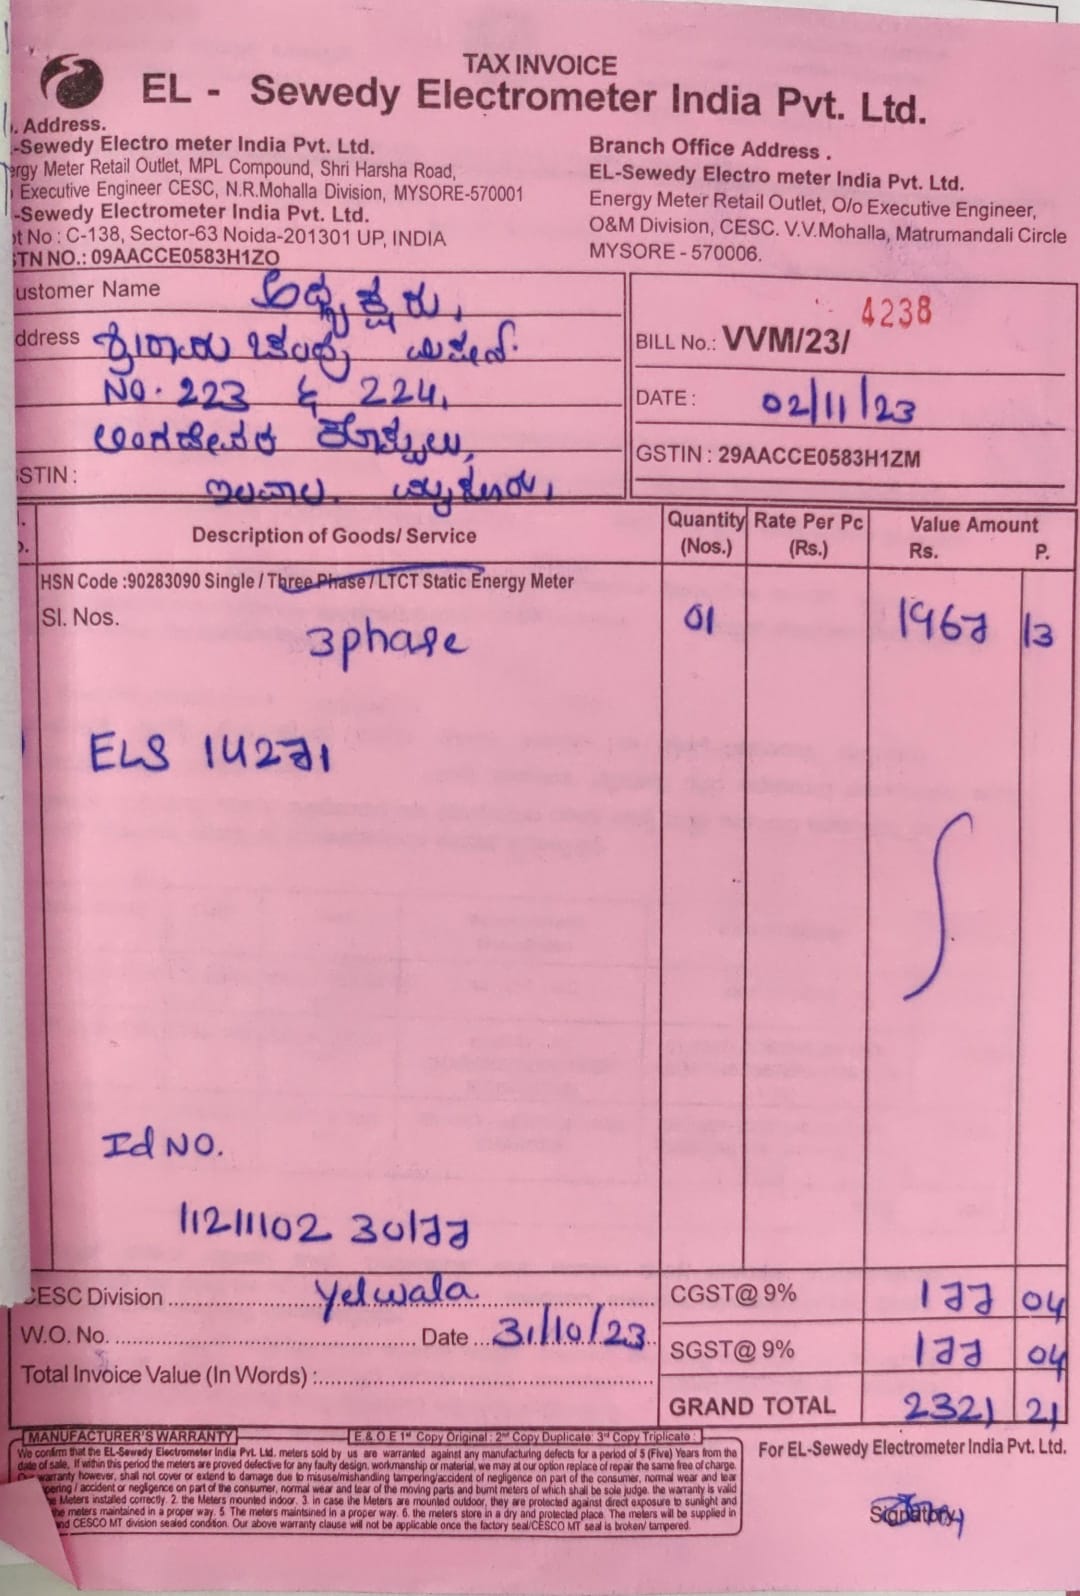 TAX INVOICE
EL - Sewedy Electrometer India Pvt. Ltd.
. Address.
-Sewedy Electro meter India Pvt. Ltd.
ergy Meter Retail Outlet, MPL Compound, Shri Harsha Road,
Executive Engineer CESC, N.R.Mohalla Division, MYSORE-570001
-Sewedy Electrometer India Pvt. Ltd.
ot No : C-138, Sector-63 Noida-201301 UP, INDIA
STN NO.: 09AACCE0583H1ZO
Branch Office Address .
EL-Sewedy Electro meter India Pvt. Ltd.
Energy Meter Retail Outlet, O/o Executive Engineer,
O&M Division, CESC. V.V.Mohalla, Matrumandali Circle
MYSORE - 570006.
ustomer Name ಅಧ್ಯಕ್ಷರು,
ddress
No. 223 & 224,
STIN :
ಇಲವಾಲ. ಮೈಸೂರು,
4238
BILL No.: VVM/23/
DATE : 02/11/23
GSTIN : 29AACCE0583H1ZM
Description of Goods/ Service
Quantity (Nos.)
Rate Per Pc (Rs.)
Value Amount
Rs. P.
HSN Code :90283090 Single / Three Phase / LTCT Static Energy Meter
Sl. Nos.
3phase 01 1967 13
ELS 14271
Id NO.
11211102 30177
CESC Division Yelwala
W.O. No. Date 31/10/23
Total Invoice Value (In Words) :
CGST@ 9% 177 04
SGST@ 9% 177 04
GRAND TOTAL 2321 21
MANUFACTURER'S WARRANTY E & O E 1st Copy Original : 2nd Copy Duplicate: 3rd Copy Triplicate :
We confirm that the EL-Sewedy Electrometer India Pvt. Ltd. meters sold by us are warranted against any manufacturing defects for a period of 5 (Five) Years from the
date of sale. If within this period the meters are proved defective for any faulty design, workmanship or material, we may at our option replace of repair the same free of charge.
warranty however, shall not cover or extend to damage due to misuse/mishandling tampering/accident of negligence on part of the consumer, normal wear and tear
pering / accident or negligence on part of the consumer, normal wear and tear of the moving parts and burnt meters of which shall be sole judge. the warranty is valid
e Meters installed correctly. 2. the Meters mounted indoor. 3. in case the Meters are mounted outdoor, they are protected against direct exposure to sunlight and
he meters maintained in a proper way. 5. The meters maintsined in a proper way. 6. the meters store in a dry and protected place. The meters will be supplied in
nd CESCO MT division sealed condition. Our above warranty clause will not be applicable once the factory seal/CESCO MT seal is broken/ tampered.
For EL-Sewedy Electrometer India Pvt. Ltd.
Signatory